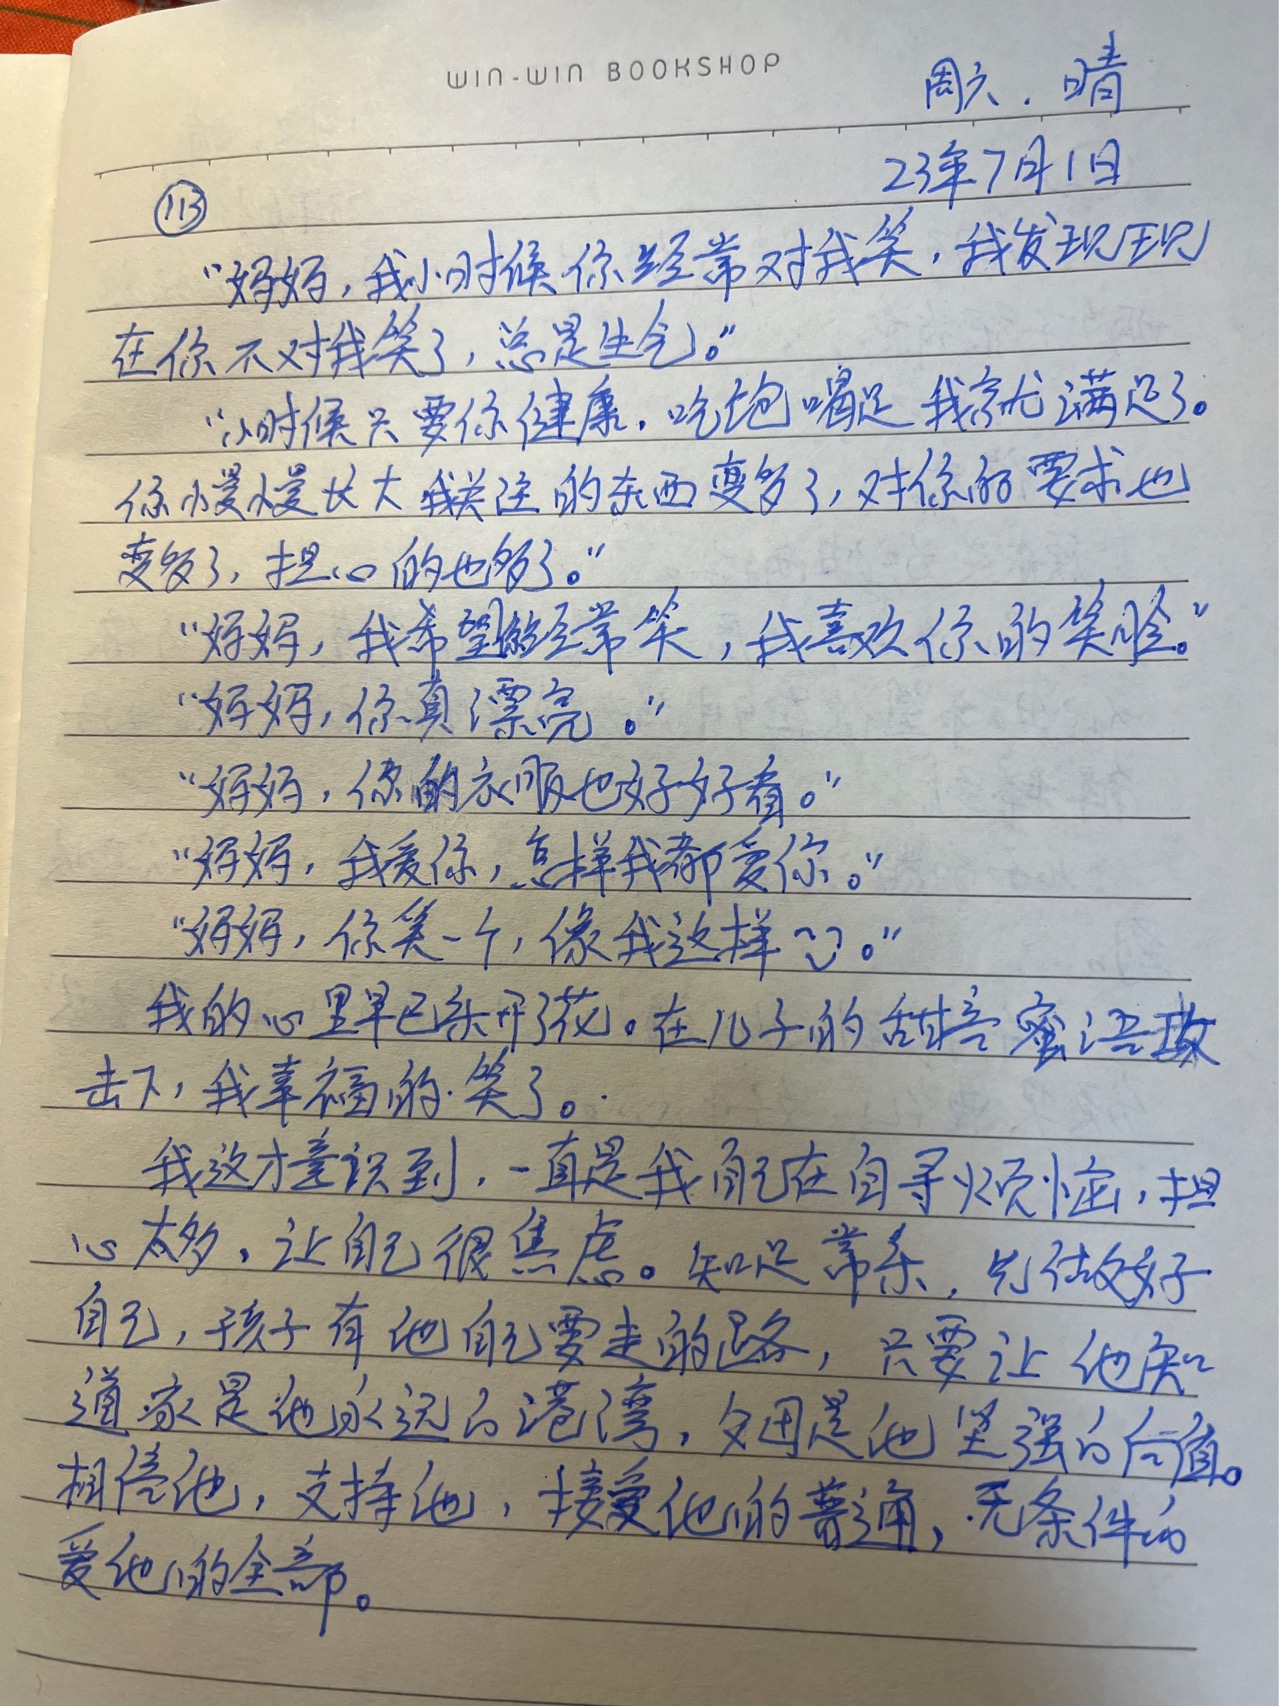 WIN-WIN BOOKSHOP
周六．晴
23年7月1日
113
“妈妈，我小时候你经常对我笑，我发现现
在你不对我笑了，总是生气。”
“小时候只要你健康，吃饱喝足我就满足了。
你慢慢长大我关注的东西变多了，对你的要求也
变多了，担心的也多了。”
“妈妈，我希望你经常笑，我喜欢你的笑脸。”
“妈妈，你真漂亮。”
“妈妈，你的衣服也好好看。”
“妈妈，我爱你，怎样我都爱你。”
“妈妈，你笑一个，像我这样。”
我的心里早已乐开了花。在儿子的甜言蜜语攻
击下，我幸福的笑了。
我这才意识到，一直是我自己在自寻烦恼，担
心太多，让自己很焦虑。知足常乐，先做好
自己，孩子有他自己要走的路，只要让他知
道家是他永远的港湾，父母是他坚强的后盾。
相信他，支持他，接受他的普通，无条件的
爱他的全部。